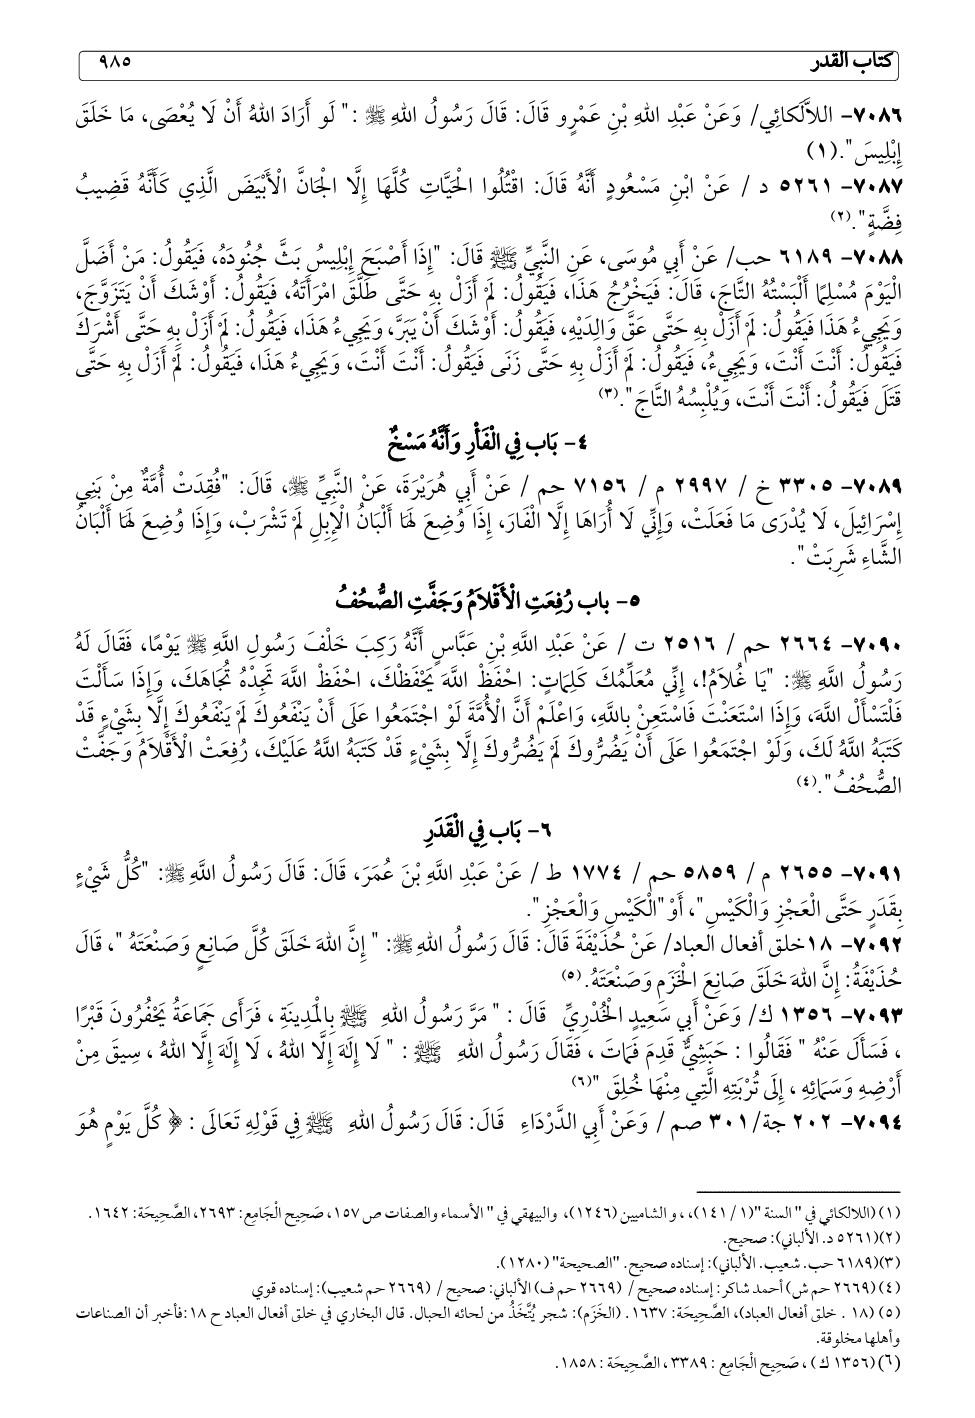 كتاب القدر ٩٨٥
٧٠٨٦- اللاَّلَكائِي/ وَعَنْ عَبْدِ اللهِ بْنِ عَمْرٍو قَالَ: قَالَ رَسُولُ اللهِ ﷺ :" لَو أَرَادَ اللهُ أَنْ لَا يُعْصَى، مَا خَلَقَ
إِبْلِيسَ".(١)
٧٠٨٧- ٥٢٦١ د / عَنْ ابْنِ مَسْعُودٍ أَنَّهُ قَالَ: اقْتُلُوا الْحَيَّاتِ كُلَّهَا إِلَّا الْجَانَّ الْأَبْيَضَ الَّذِي كَأَنَّهُ قَضِيبُ
فِضَّةٍ".(٢)
٧٠٨٨- ٦١٨٩ حب/ عَنْ أَبِي مُوسَى، عَنِ النَّبِيِّ ﷺ قَالَ: "إِذَا أَصْبَحَ إِبْلِيسُ بَثَّ جُنُودَهُ، فَيَقُولُ: مَنْ أَضَلَّ
الْيَوْمَ مُسْلِمًا أَلْبَسْتُهُ التَّاجَ، قَالَ: فَيَخْرُجُ هَذَا، فَيَقُولُ: لَمْ أَزَلْ بِهِ حَتَّى طَلَّقَ امْرَأَتَهُ، فَيَقُولُ: أَوْشَكَ أَنْ يَتَزَوَّجَ،
وَيَجِيءُ هَذَا فَيَقُولُ: لَمْ أَزَلْ بِهِ حَتَّى عَقَّ وَالِدَيْهِ، فَيَقُولُ: أَوْشَكَ أَنْ يَبَرَّ، وَيَجِيءُ هَذَا، فَيَقُولُ: لَمْ أَزَلْ بِهِ حَتَّى أَشْرَكَ
فَيَقُولُ: أَنْتَ أَنْتَ، وَيَجِيءُ، فَيَقُولُ: لَمْ أَزَلْ بِهِ حَتَّى زَنَى فَيَقُولُ: أَنْتَ أَنْتَ، وَيَجِيءُ هَذَا، فَيَقُولُ: لَمْ أَزَلْ بِهِ حَتَّى
قَتَلَ فَيَقُولُ: أَنْتَ أَنْتَ، وَيُلْبِسُهُ التَّاجَ".(٣)
٤- بَاب فِي الْفَأْرِ وَأَنَّهُ مَسْخٌ
٧٠٨٩- ٣٣٠٥ خ / ٢٩٩٧ م / ٧١٥٦ حم / عَنْ أَبِي هُرَيْرَةَ، عَنْ النَّبِيِّ ﷺ، قَالَ: "فُقِدَتْ أُمَّةٌ مِنْ بَنِي
إِسْرَائِيلَ، لَا يُدْرَى مَا فَعَلَتْ، وَإِنِّي لَا أُرَاهَا إِلَّا الْفَارَ، إِذَا وُضِعَ لَهَا أَلْبَانُ الْإِبِلِ لَمْ تَشْرَبْ، وَإِذَا وُضِعَ لَهَا أَلْبَانُ
الشَّاءِ شَرِبَتْ".
٥- باب رُفِعَتِ الْأَقْلَامُ وَجَفَّتِ الصُّحُفُ
٧٠٩٠- ٢٦٦٤ حم / ٢٥١٦ ت / عَنْ عَبْدِ اللَّهِ بْنِ عَبَّاسٍ أَنَّهُ رَكِبَ خَلْفَ رَسُولِ اللَّهِ ﷺ يَوْمًا، فَقَالَ لَهُ
رَسُولُ اللَّهِ ﷺ: "يَا غُلَامُ!، إِنِّي مُعَلِّمُكَ كَلِمَاتٍ: احْفَظْ اللَّهَ يَحْفَظْكَ، احْفَظْ اللَّهَ تَجِدْهُ تُجَاهَكَ، وَإِذَا سَأَلْتَ
فَلْتَسْأَلْ اللَّهَ، وَإِذَا اسْتَعَنْتَ فَاسْتَعِنْ بِاللَّهِ، وَاعْلَمْ أَنَّ الْأُمَّةَ لَوْ اجْتَمَعُوا عَلَى أَنْ يَنْفَعُوكَ لَمْ يَنْفَعُوكَ إِلَّا بِشَيْءٍ قَدْ
كَتَبَهُ اللَّهُ لَكَ، وَلَوْ اجْتَمَعُوا عَلَى أَنْ يَضُرُّوكَ لَمْ يَضُرُّوكَ إِلَّا بِشَيْءٍ قَدْ كَتَبَهُ اللَّهُ عَلَيْكَ، رُفِعَتْ الْأَقْلَامُ وَجَفَّتْ
الصُّحُفُ".(٤)
٦- بَاب فِي الْقَدَرِ
٧٠٩١- ٢٦٥٥ م / ٥٨٥٩ حم / ١٧٧٤ ط / عَنْ عَبْدِ اللَّهِ بْنَ عُمَرَ، قَالَ: قَالَ رَسُولُ اللَّهِ ﷺ: "كُلُّ شَيْءٍ
بِقَدَرٍ حَتَّى الْعَجْزِ وَالْكَيْسِ"، أَوْ "الْكَيْسِ وَالْعَجْزِ".
٧٠٩٢- ١٨خلق أفعال العباد/ عَنْ حُذَيْفَةَ قَالَ: قَالَ رَسُولُ اللهِ ﷺ: " إِنَّ اللهَ خَلَقَ كُلَّ صَانِعٍ وَصَنْعَتَهُ "، قَالَ
حُذَيْفَةُ: إِنَّ اللهَ خَلَقَ صَانِعَ الْخَزَمِ وَصَنْعَتَهُ.(٥)
٧٠٩٣- ١٣٥٦ ك/ وَعَنْ أَبِي سَعِيدٍ الْخُدْرِيِّ قَالَ : " مَرَّ رَسُولُ اللهِ ﷺ بِالْمَدِينَةِ ، فَرَأَى جَمَاعَةً يَحْفُرُونَ قَبْرًا
، فَسَأَلَ عَنْهُ " فَقَالُوا : حَبَشِيٌّ قَدِمَ فَمَاتَ ، فَقَالَ رَسُولُ اللهِ ﷺ : " لَا إِلَهَ إِلَّا اللهُ ، لَا إِلَهَ إِلَّا اللهُ ، سِيقَ مِنْ
أَرْضِهِ وَسَمَائِهِ ، إِلَى تُرْبَتِهِ الَّتِي مِنْهَا خُلِقَ "(٦)
٧٠٩٤- ٢٠٢ جة/ ٣٠١ صم / وَعَنْ أَبِي الدَّرْدَاءِ قَالَ: قَالَ رَسُولُ اللهِ ﷺ فِي قَوْلِهِ تَعَالَى : ﴿ كُلَّ يَوْمٍ هُوَ
(١) (اللالكائي في " السنة "(١/ ١٤١)، ، و الشاميين (١٢٤٦)، والبيهقي في " الأسماء والصفات ص ١٥٧، صَحِيح الْجَامِع: ٢٦٩٣، الصَّحِيحَة: ١٦٤٢ .
(٢)(٥٢٦١ د. الألباني): صحيح.
(٣)(٦١٨٩ حب. شعيب. الألباني): إسناده صحيح. "الصحيحة" (١٢٨٠).
(٤) (٢٦٦٩ حم ش) أحمد شاكر: إسناده صحيح / (٢٦٦٩ حم ف) الألباني: صحيح / (٢٦٦٩ حم شعيب): إسناده قوي
(٥) (١٨ . خلق أفعال العباد)، الصَّحِيحَة: ١٦٣٧ . (الخَزَم): شجر يُتَّخَذُ من لحائه الحبال. قال البخاري في خلق أفعال العباد ح ١٨ :فأخبر أن الصناعات
وأهلها مخلوقة.
(٦)(١٣٥٦ ك ) ، صَحِيح الْجَامِع : ٣٣٨٩ ، الصَّحِيحَة : ١٨٥٨ .